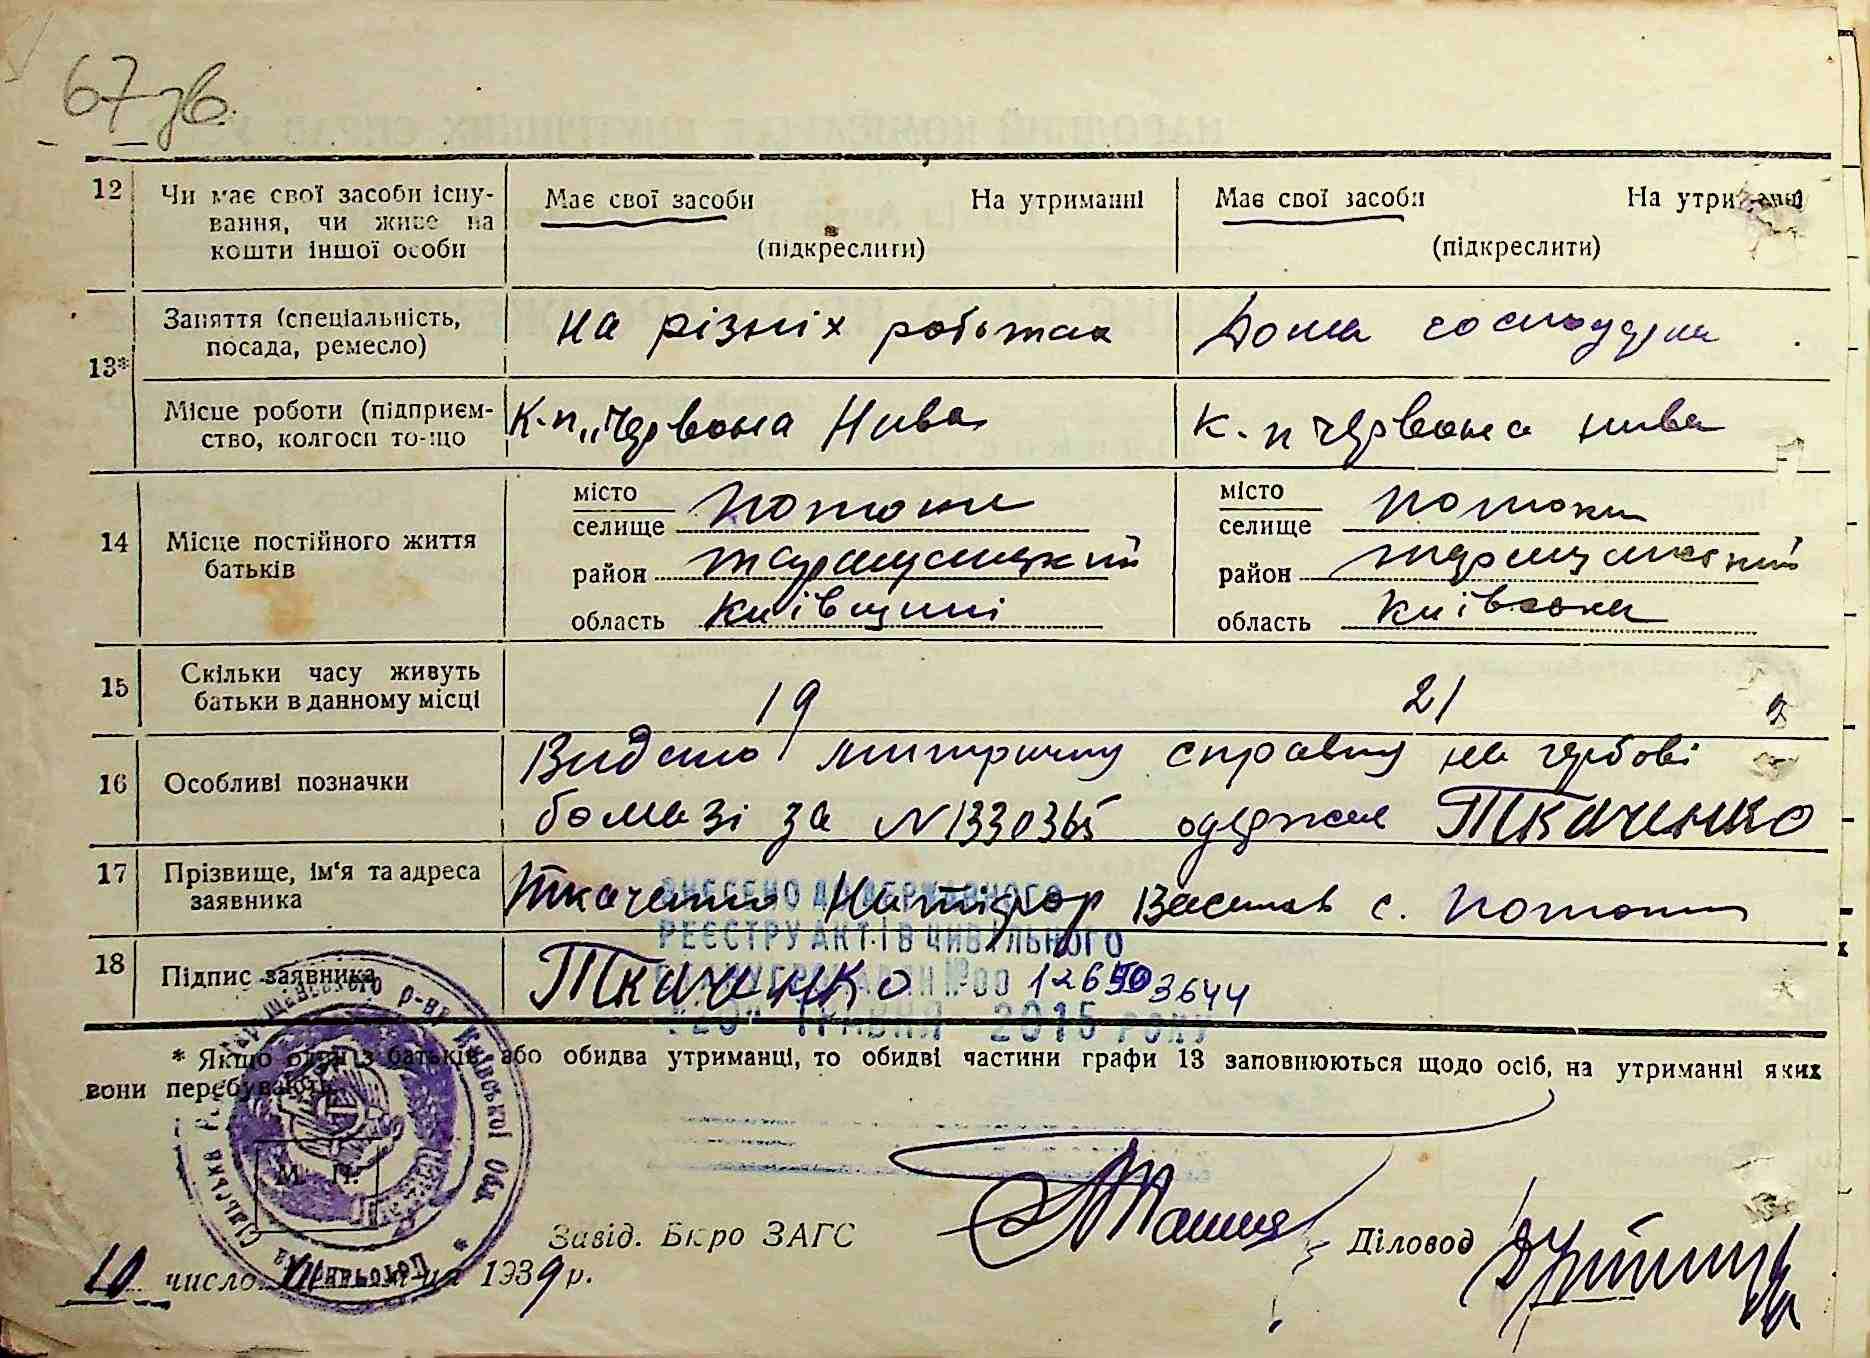 67 зв.
12 Чи має свої засоби існу-
вання, чи живе на
кошти іншої особи
Має свої засоби На утриманні
(підкреслити)
Має свої засоби На утриманні
(підкреслити)
13*
Заняття (спеціальність,
посада, ремесло)
на різніх роботах
Дома господарка
Місце роботи (підприєм-
ство, колгосп то-що
К-п „Червона Нива
к-п червона нива
14 Місце постійного життя
батьків
місто
селище Потоки
район таращанский
область Київщині
місто
селище Потоки
район таращанский
область Київська
15 Скільки часу живуть
батьки в данному місці
19
21
16 Особливі позначки
Видано митричну справку на гербові
бомазі за №1330365 одержав Ткаченко
17 Прізвище, ім'я та адреса
заявника
Ткаченко Никіфор Василів с. Потоки
18 Підпис заявника
Ткаченко
ВНЕСЕНО ДО ДЕРЖАВНОГО
РЕЄСТРУ АКТІВ ЦИВІЛЬНОГО
СТАНУ ГРОМАДЯН №00 126503644
ТРАВНЯ 2015 РОКУ
* Якщо один із батьків або обидва утриманці, то обидві частини графи 13 заповнюються щодо осіб, на утриманні яких
вони перебувають.
М. П.
р-ну Київської Обл.
Завід. Бюро ЗАГС
Діловод
10 число XII м-ця 1939 р.